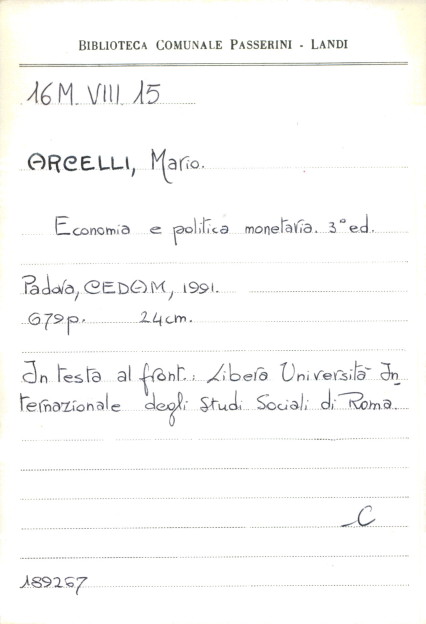 BIBLIOTECA COMUNALE PASSERINI - LANDI
16 M. VIII. 15
ARCELLI, Mario.
Economia e politica monetaria. 3° ed.
Padova, CEDAM, 1991.
679 p. 24 cm.
In testa al front.: Libera Università In
ternazionale degli Studi Sociali di Roma.
C
189267